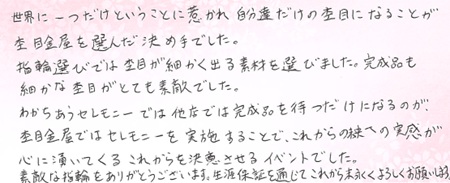 世界に一つだけということに惹かれ 自分達だけの杢目になることが
杢目金屋を選んだ決め手でした。
指輪選びでは杢目が細かく出る素材を選びました。完成品も
細かな杢目がとても素敵でした。
わかちあうセレモニーでは他店では完成品を待つだけになるのが、
杢目金屋ではセレモニーを実施することで、これからの絆への実感が
心に湧いてくる これからを決意させるイベントでした。
素敵な指輪をありがとうございます。生涯保証を通じてこれから末永くよろしくお願いします